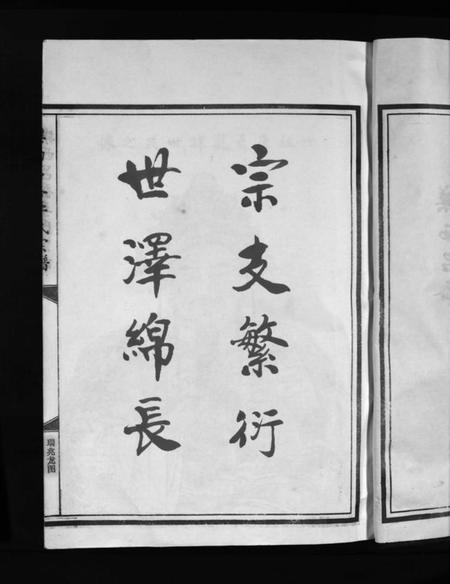 宗支繁衍
世澤綿長
瑞兆龙图